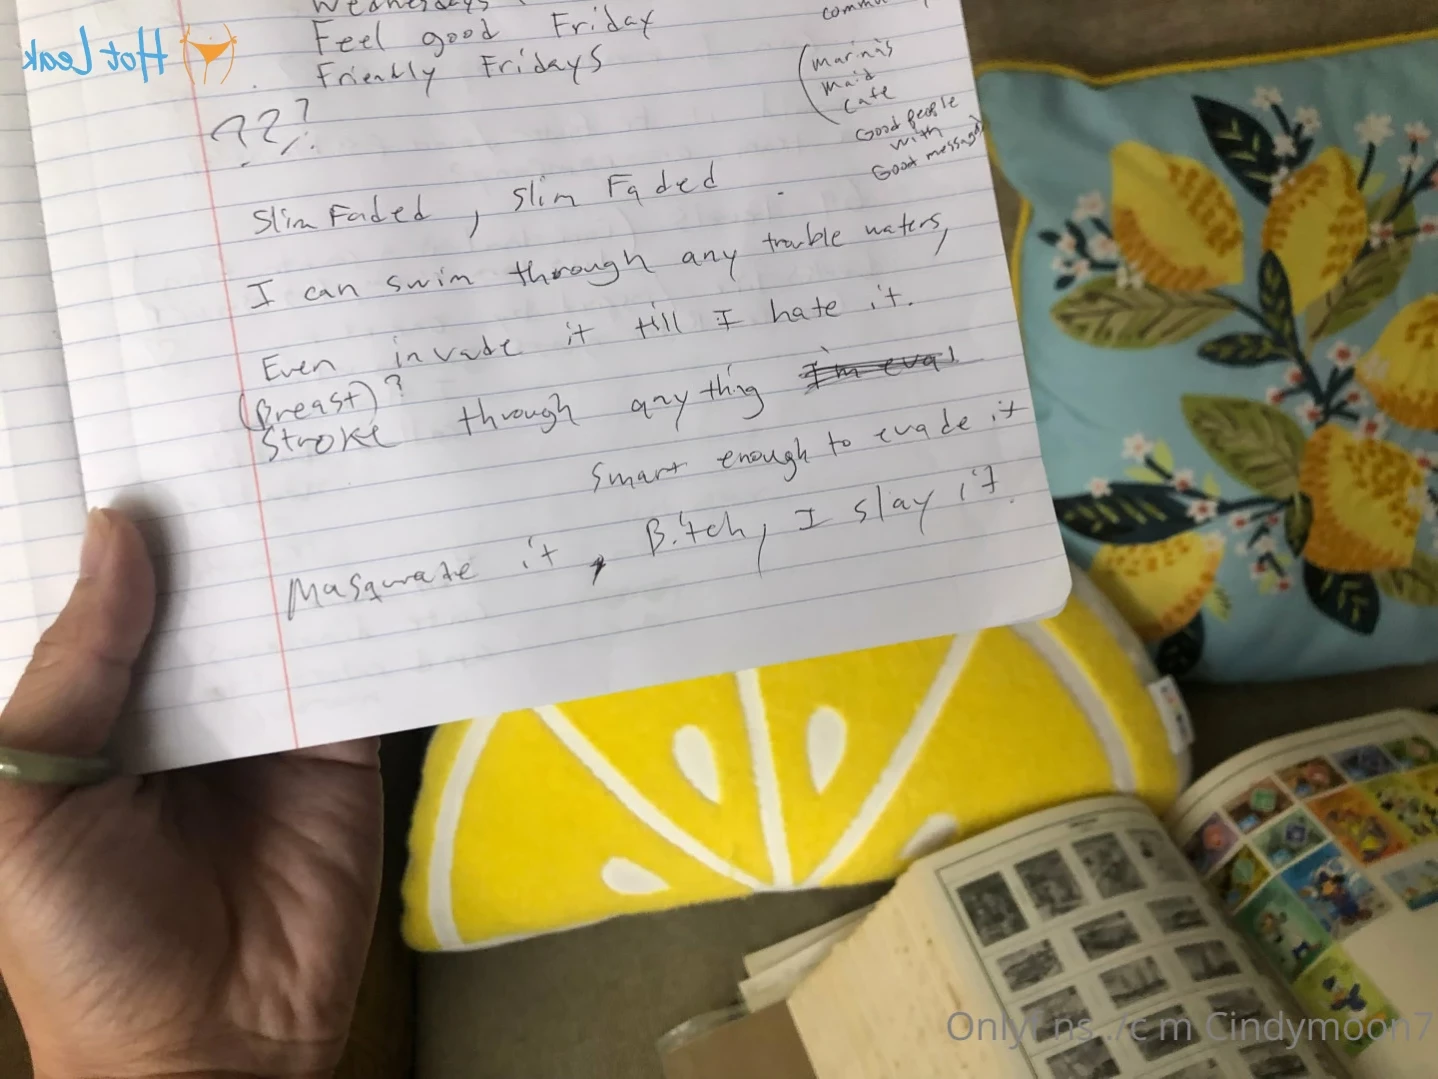 Wednesdays
Feel good Friday
Friendly Fridays
???
(Marina's
Maid
Cafe
Good people
with
Good message
Slim Faded, Slim Faded
I can swim through any trouble waters,
Even invade it till I hate it.
(Breast)?
Stroke through anything I'm eva
Smart enough to evade it
Masqurate it, Bitch, I slay it.
Hot Leak
Cindymoon7